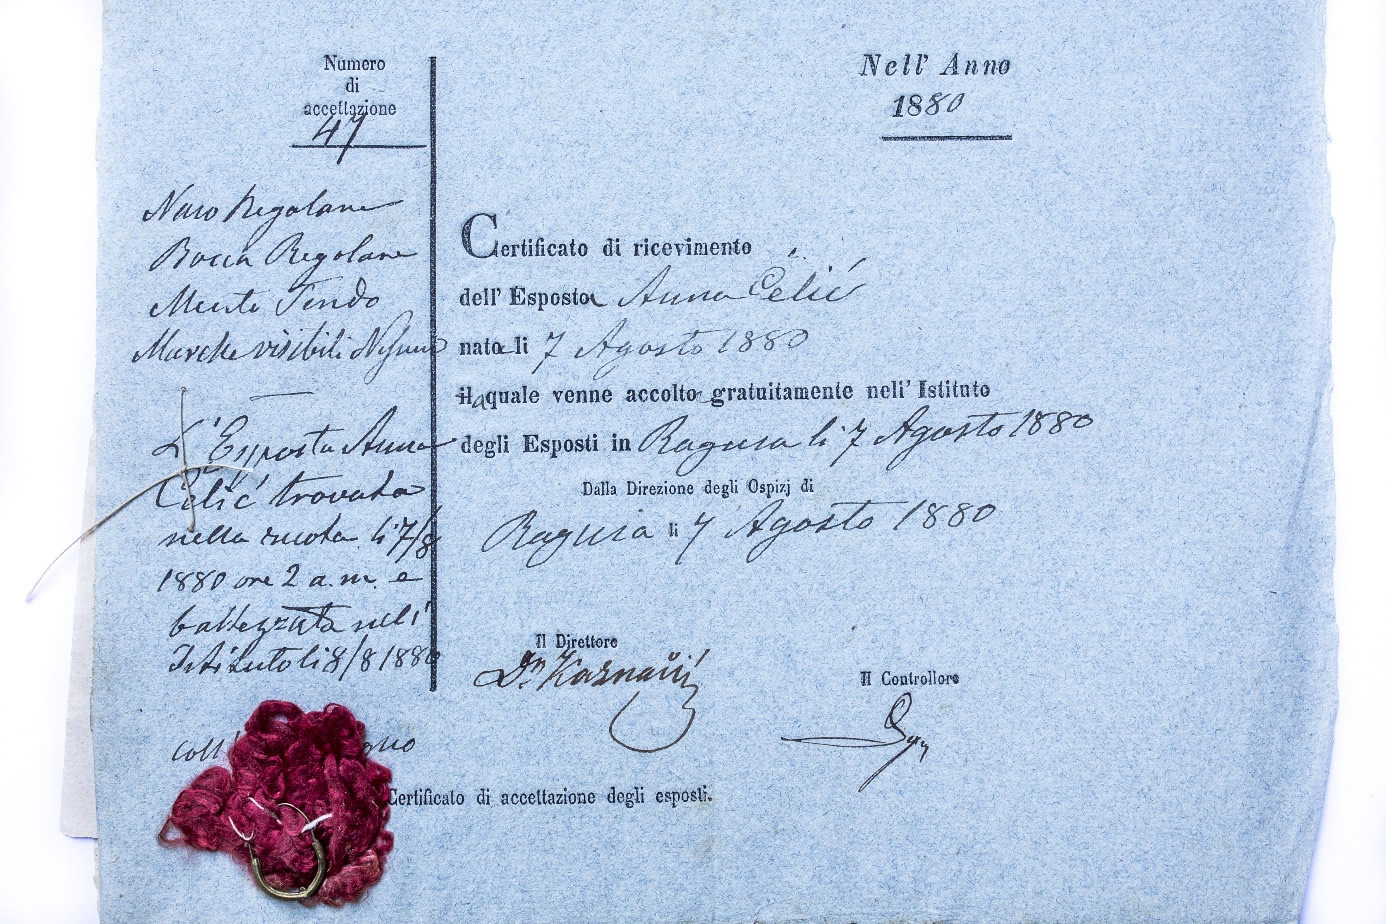 Numero
di
accettazione
47
Naso Regolare
Bocca Regolare
Mento Tondo
Marche visibili Nessuno
L'Esposta Anna
Celić trovata
nella ruota li 7/8
1880 ore 2 a.m. e
battezzata nell'
Istituto li 8/8 1880
coll'
Nell' Anno
1880
Certificato di ricevimento
dell' Esposta Anna Celić
nata li 7 Agosto 1880
la quale venne accolta gratuitamente nell' Istituto
degli Esposti in Ragusa li 7 Agosto 1880
Dalla Direzione degli Ospizj di
Ragusa li 7 Agosto 1880
Il Direttore
Dr. Kaznačić
Il Controllore
Certificato di accettazione degli esposti.